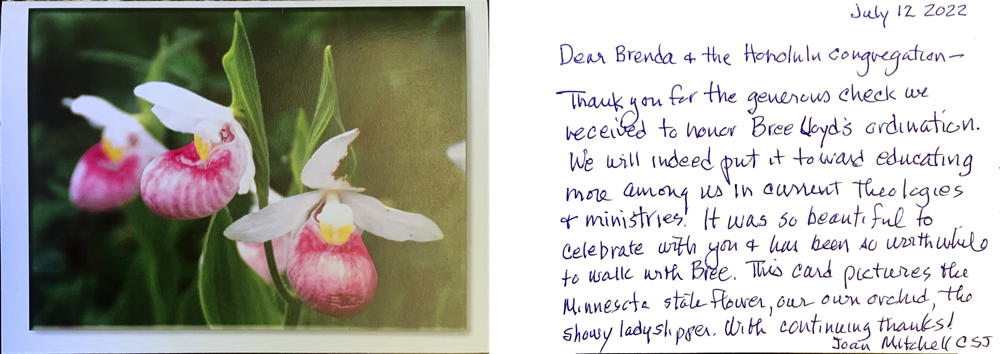 July 12 2022
Dear Brenda & the Honolulu congregation—
Thank you for the generous check we
received to honor Bree Lloyd's ordination.
We will indeed put it toward educating
more among us in current theologies
& ministries! It was so beautiful to
celebrate with you & has been so worthwhile
to walk with Bree. This card pictures the
Minnesota state flower, our own orchid, the
showy ladyslipper. With continuing thanks!
Joan Mitchell CSJ